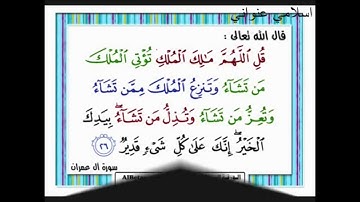 اسلامي عنواني
قال الله تعالى :
قُلِ اللَّهُمَّ مَالِكَ الْمُلْكِ تُؤْتِي الْمُلْكَ
مَن تَشَاءُ وَتَنزِعُ الْمُلْكَ مِمَّن تَشَاءُ
وَتُعِزُّ مَن تَشَاءُ وَتُذِلُّ مَن تَشَاءُ ۖ بِيَدِكَ
الْخَيْرُ ۖ إِنَّكَ عَلَىٰ كُلِّ شَيْءٍ قَدِيرٌ ٢٦
سورة آل عمران